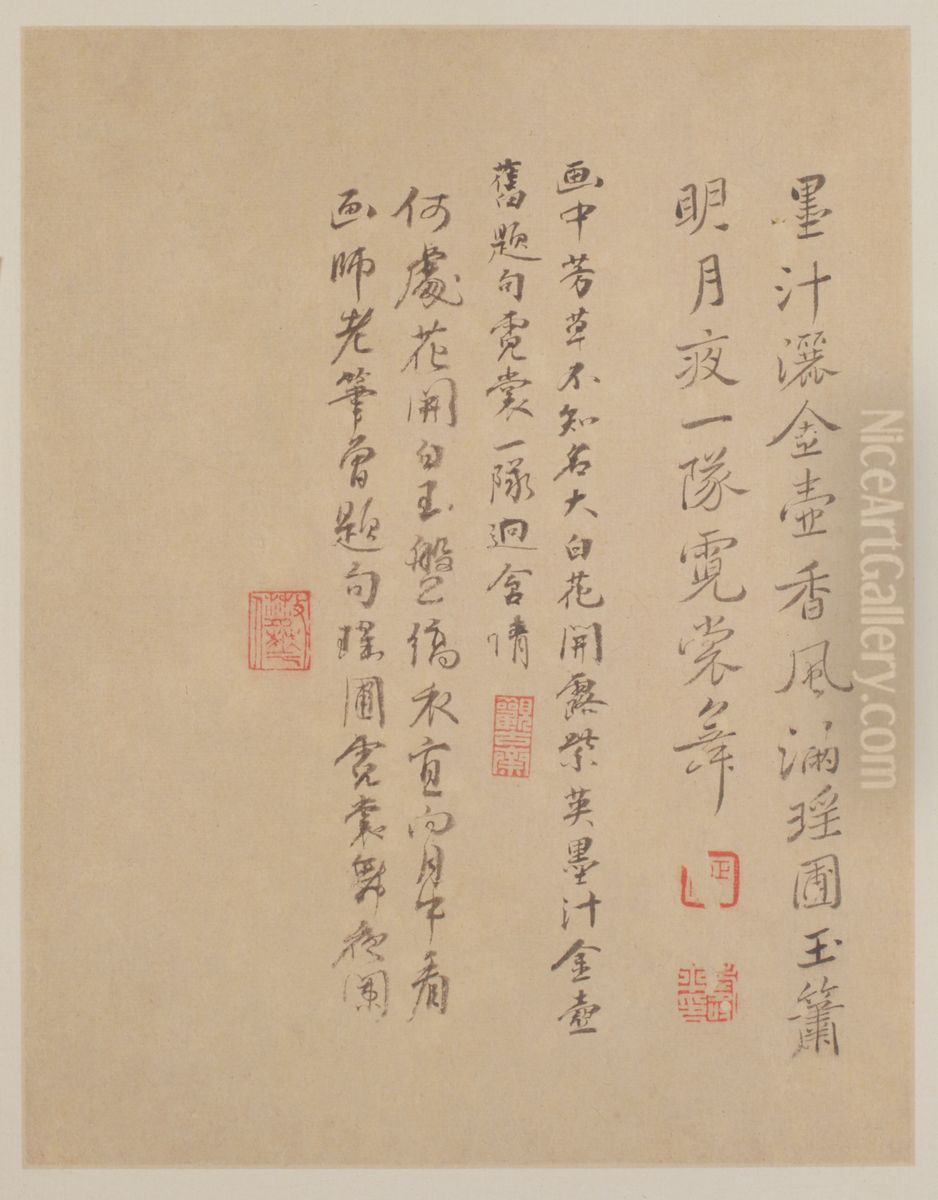 墨汁灑金壺香風滿瑤圃玉簫
明月夜一隊霓裳舞
画中芳草不知名大白花開露紫英墨汁金壺
舊題句霓裳一隊迥含情
何處花開白玉盤縞衣宜向月中看
画師老筆曾題句瑤圃霓裳舞夜闌
NiceArtGallery.com